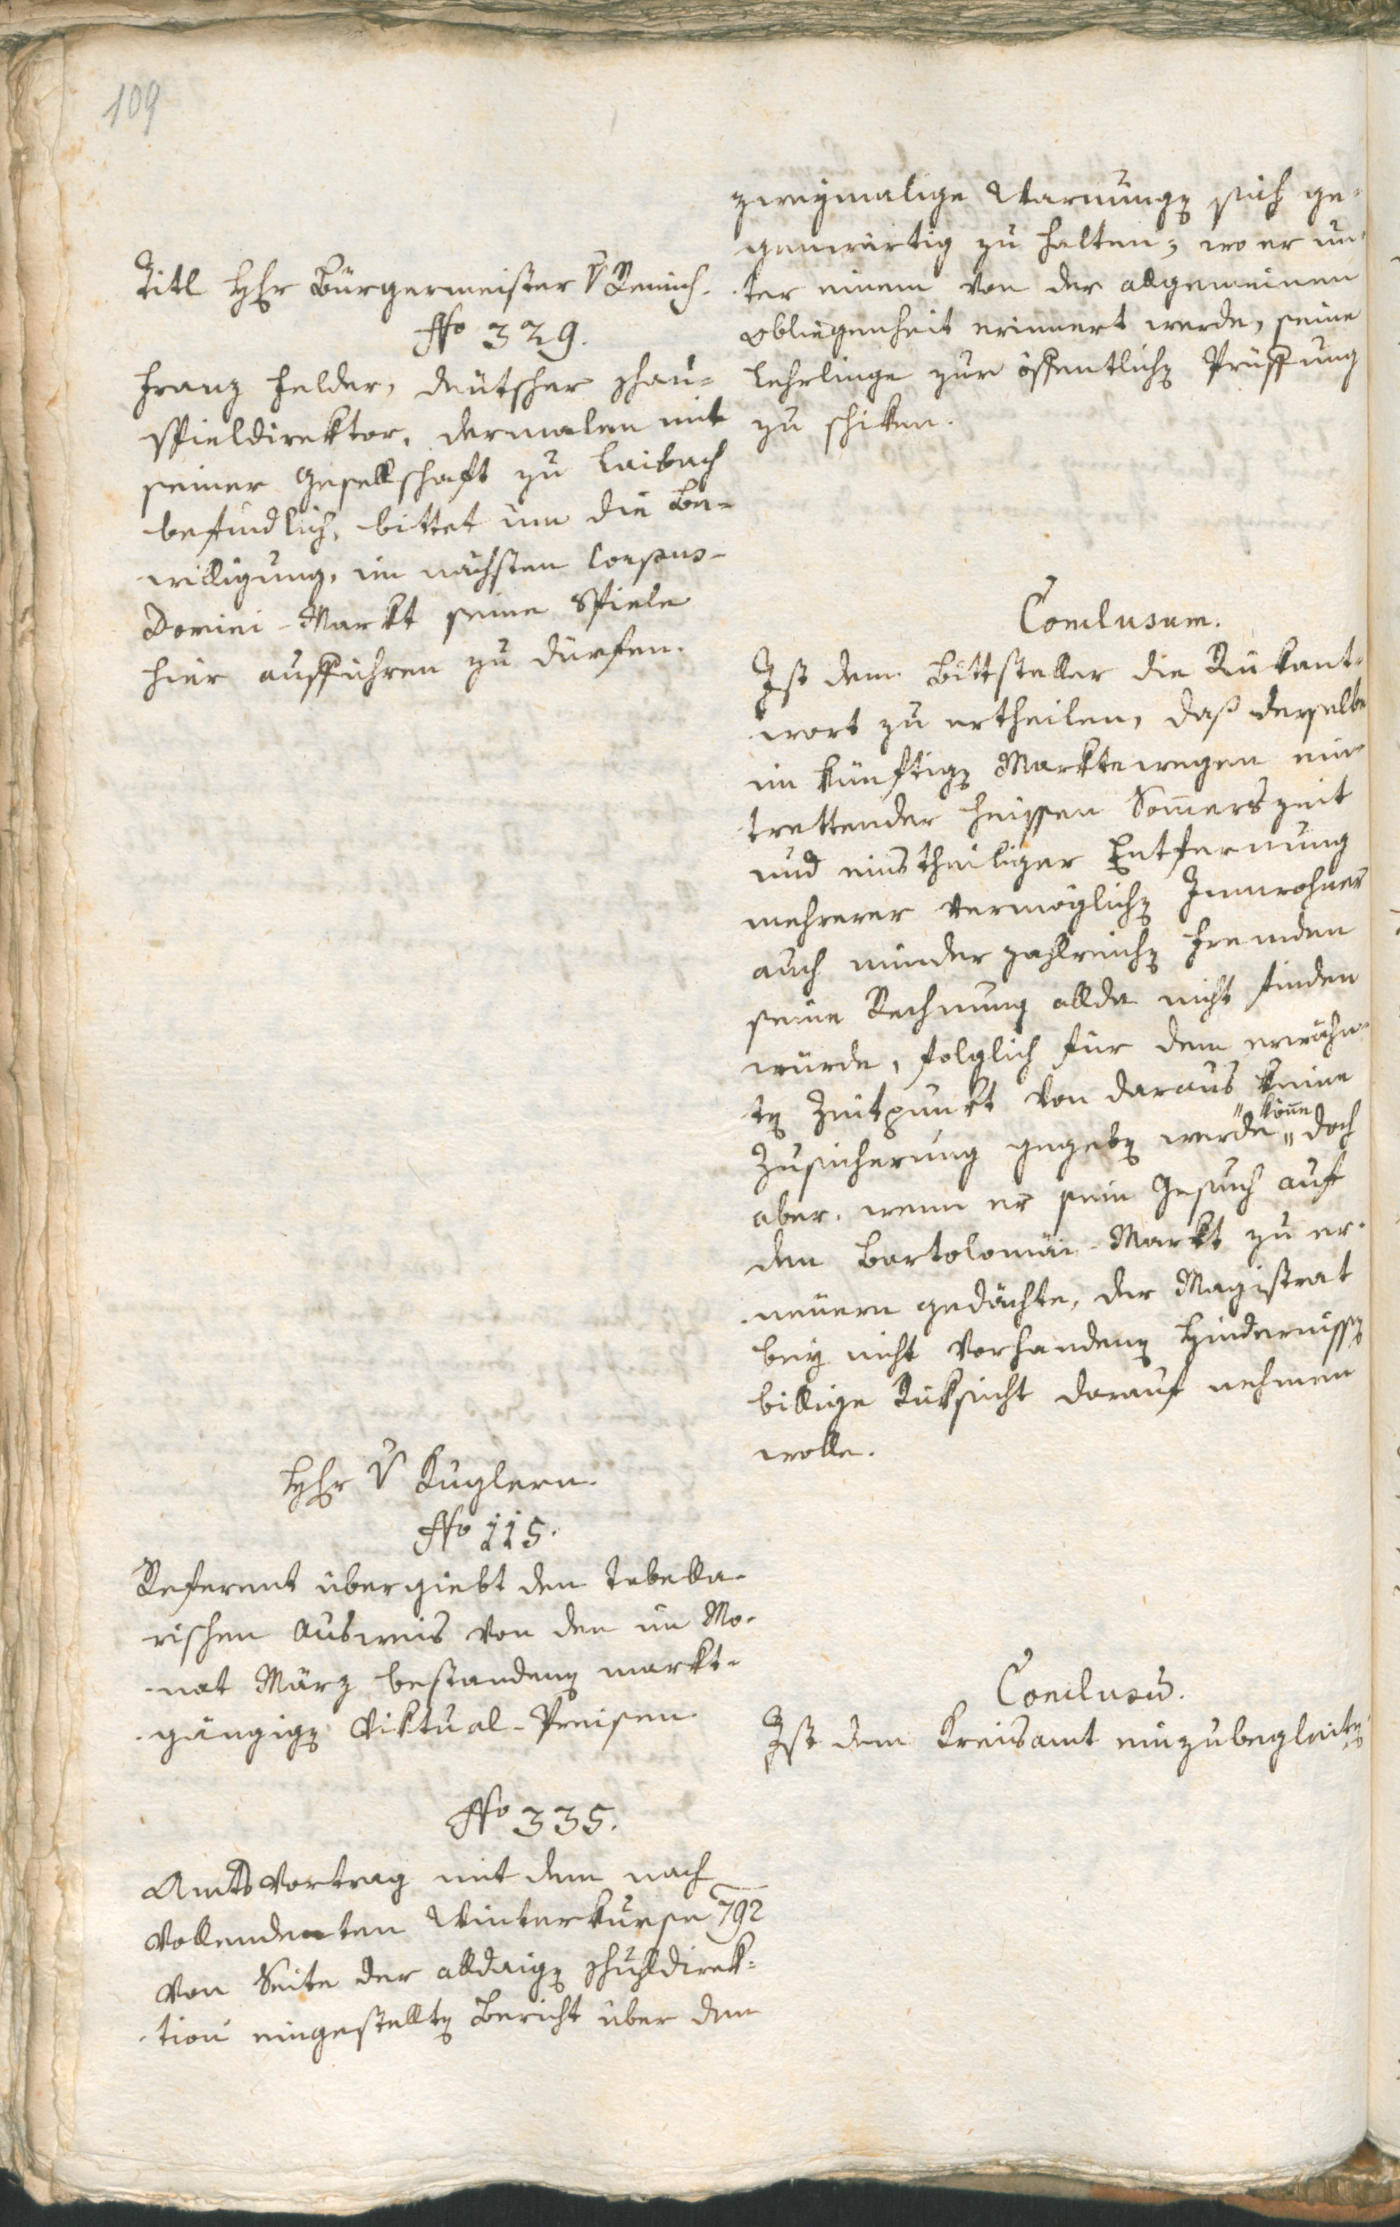 109
Titl Hr Bürgermeister v Remich.
No 329.
Franz Felder, deutscher Schau-
spieldirektor, dermalen mit
seiner Gesellschaft zu Laibach
befindlich, bittet um die Be-
willigung, im nächsten Corpus-
Domini-Markt seine Spiele
hier aufführen zu dürfen.
Hr v Kuglern.
No 115.
Referent übergiebt den tabella-
rischen Ausweis von den im Mo-
nat März bestandenen markt-
gängigen Viktual-Preisen.
No 335.
Amts Vortrag mit dem nach
vollendeten Winterkurse 792
von Seite der alldaigen Schuldirek-
tion eingestellten Bericht über den
zweymalige Warnungen sich ge-
genwärtig zu halten, wo er un-
ter einem von der allgemeinen
Obliegenheit erinnert werde, seine
Lehrlinge zur öffentlichen Prüffung
zu schiken.
Conclusum.
Ist dem Bittsteller die Rükant-
wort zu ertheilen, daß derselbe
im künftigen Markte wegen ein-
trettender heissen Sommerszeit
und einstheiliger Entfernung
mehrerer vermöglichen Innwohner
auch minder zahlreichen Fremden
seine Rechnung allda nicht finden
würde, folglich für dem erwähn-
ten Zeitpunkt von daraus keine
Zusicherung gegeben werde " könne " doch
aber, wenn er sein Gesuch auf
den Bartolomäi-Markt zu er-
neuern gedächte, der Magistrat
bey nicht vorhandenen Hindernissen
billige Rüksicht darauf nehmen
wolle.
Conclusum.
Ist dem Kreisamt einzubegleiten